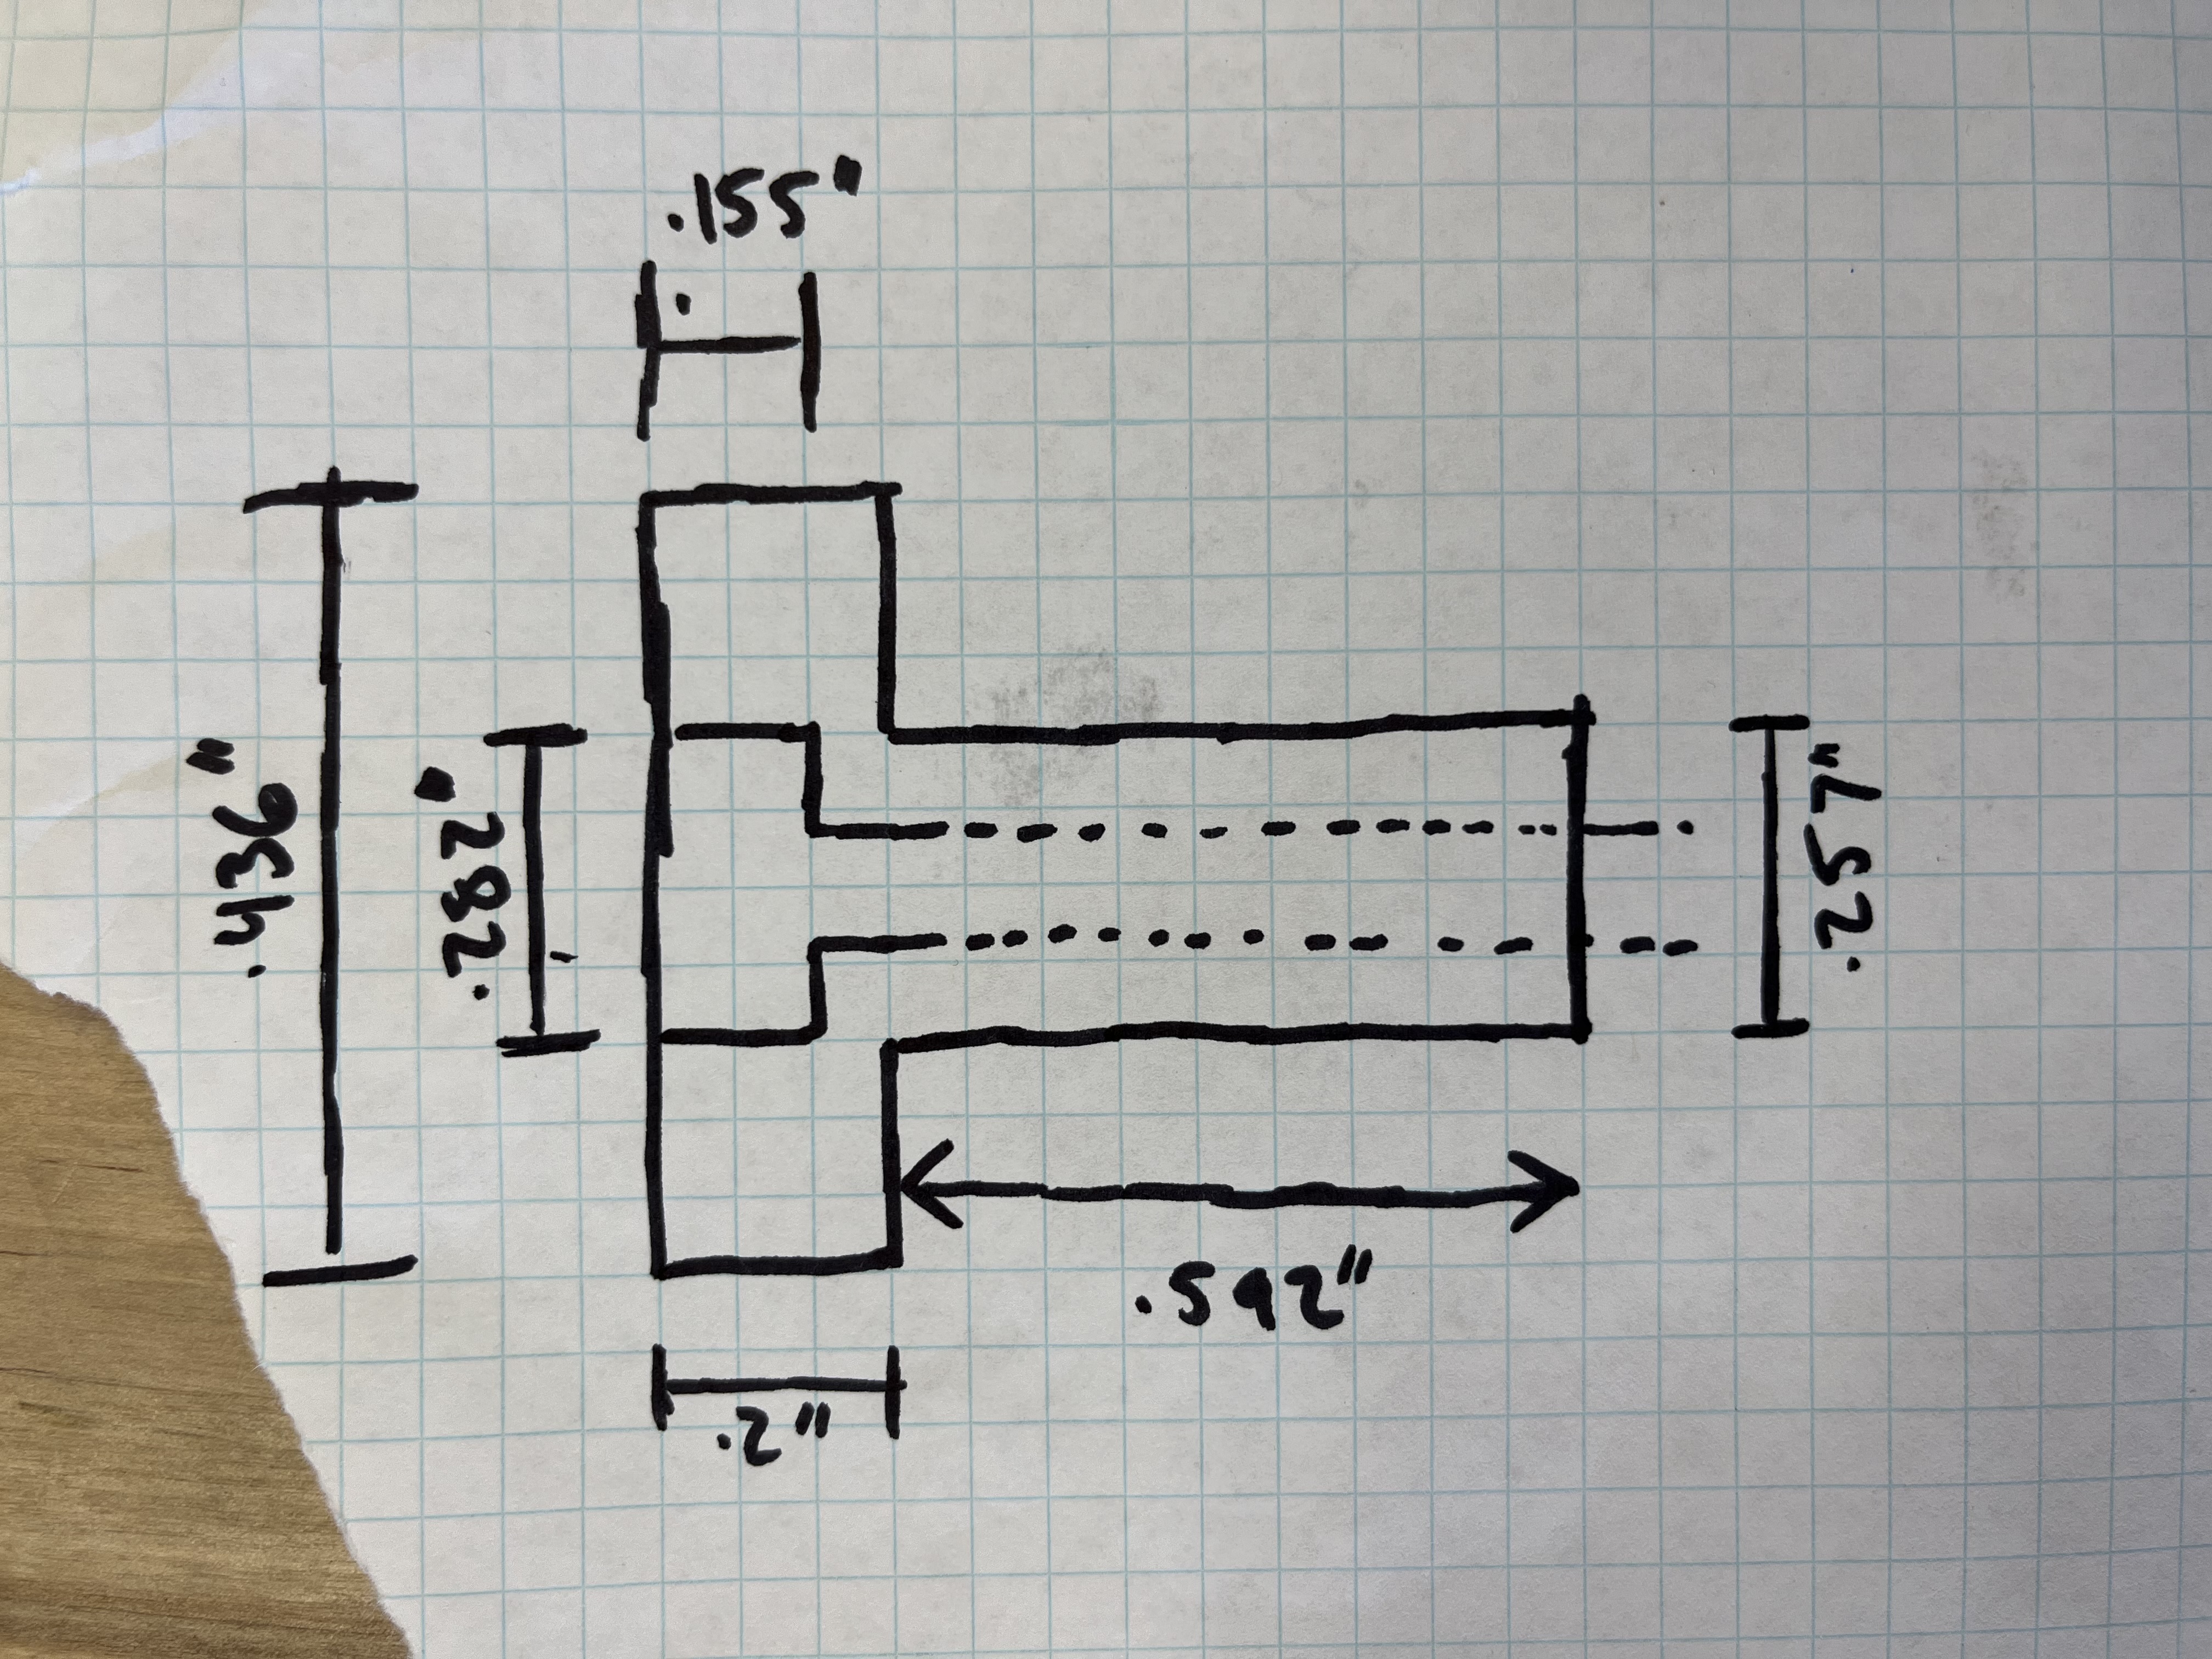 .436"
.282"
.2"
.155"
.542"
.257"